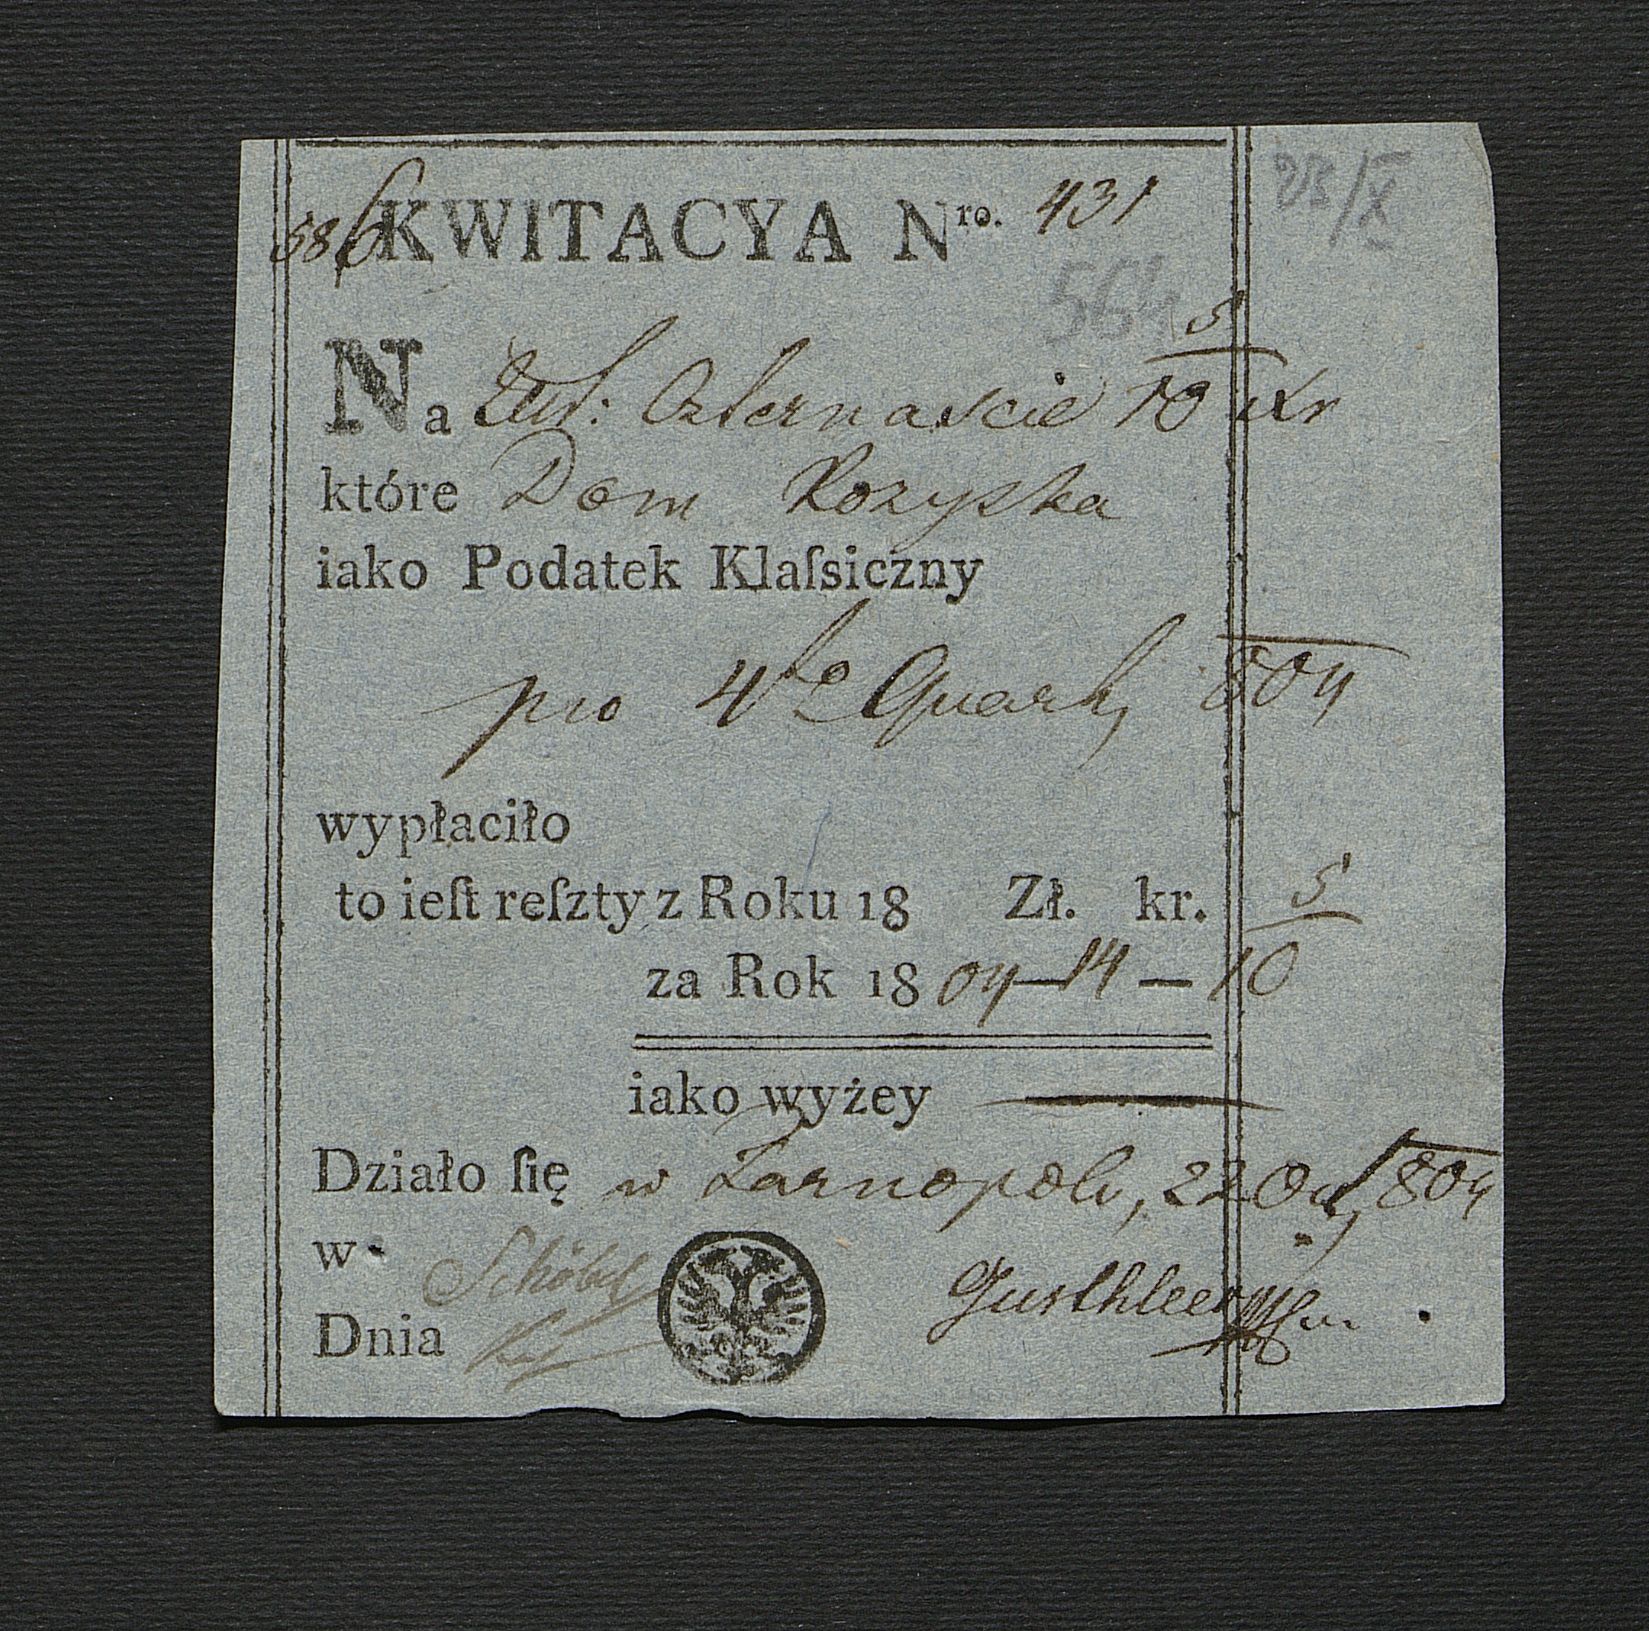 586 KWITACYA Nro. 431
25/X
564
5
Na Złot: Czternaście 10 Xr
które Dom Kozyska
iako Podatek Klaſsiczny
pro 4to Quart, 804
wypłaciło
to ieſt reſzty z Roku 18 Zł. kr. 5
za Rok 1804 – 14 – 10
iako wyżey
Działo ſię w Tarnopolu, 22 804
w Schöbel
Dnia